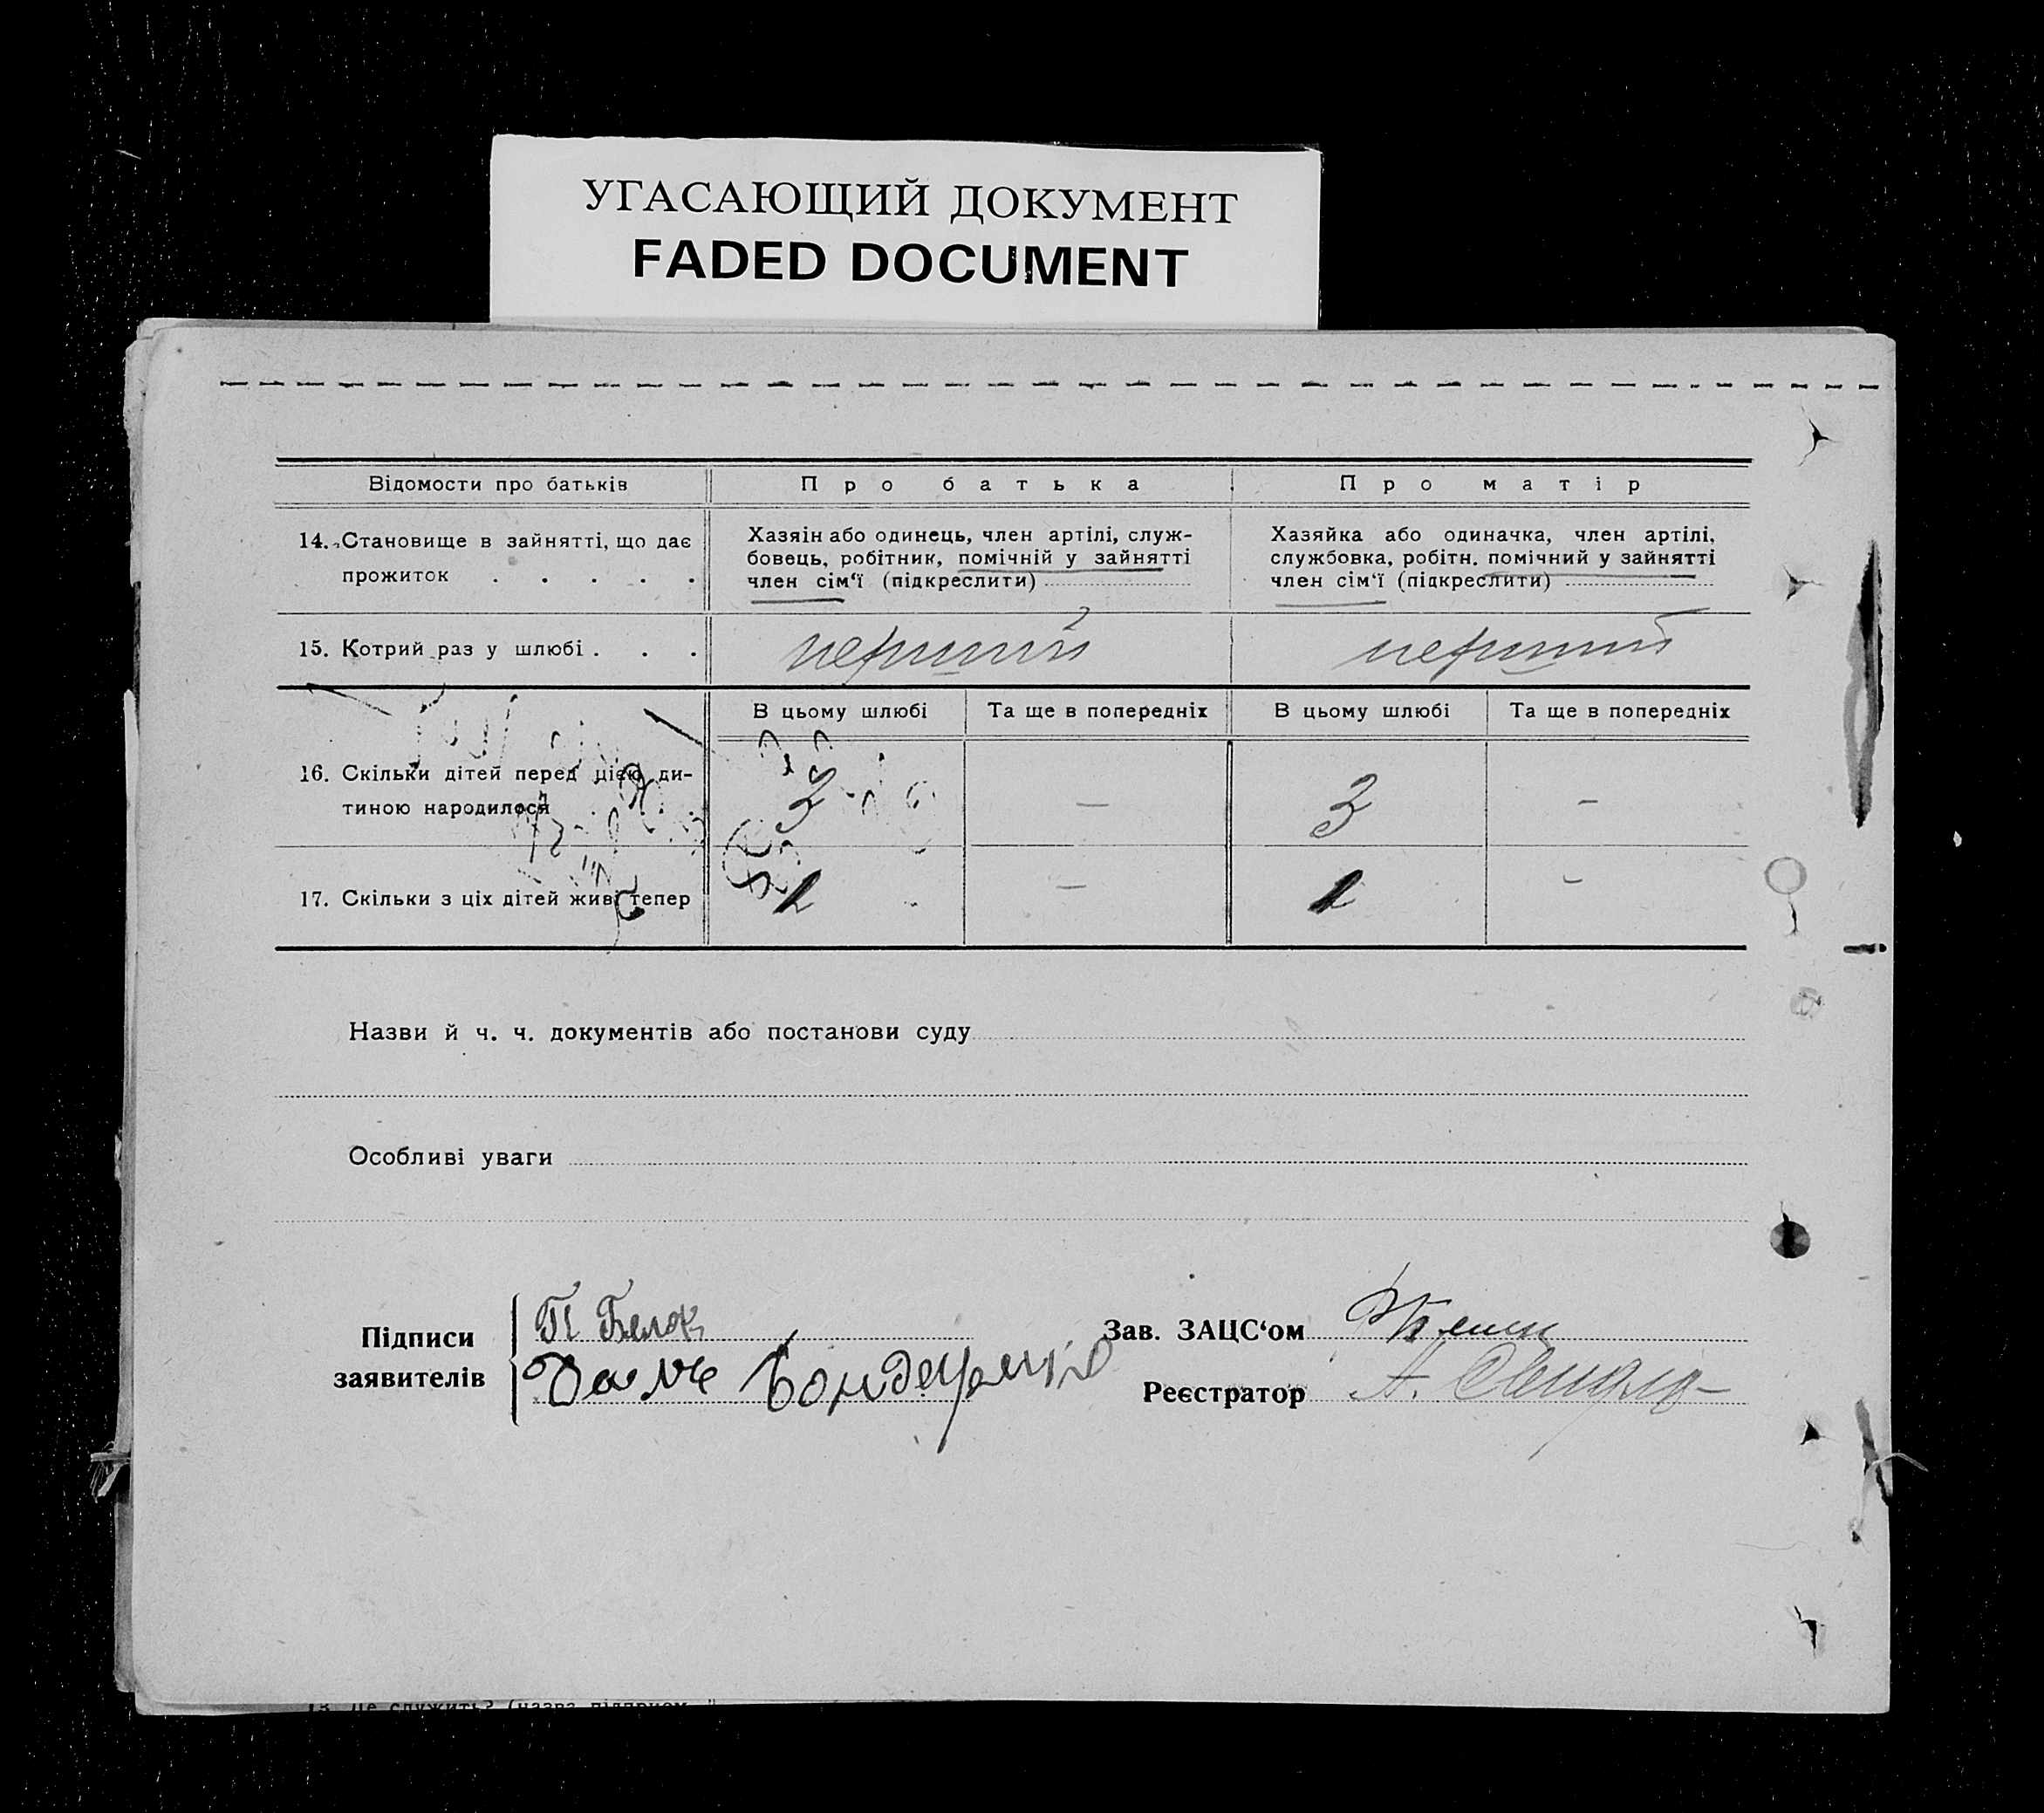 УГАСАЮЩИЙ ДОКУМЕНТ
FADED DOCUMENT
Відомости про батьків
Про батька
Про матір
14. Становище в зайнятті, що дає
прожиток . . . . .
Хазяін або одинець, член артілі, служ-
бовець, робітник, помічній у зайнятті
член сім‘ї (підкреслити)
Хазяйка або одиначка, член артілі,
службовка, робітн. помічний у зайнятті
член сім‘ї (підкреслити)
15. Котрий раз у шлюбі . . .
перший
перший
В цьому шлюбі
Та ще в попередніх
В цьому шлюбі
Та ще в попередніх
16. Скільки дітей перед цією ди-
тиною народилося
3
—
3
–
17. Скільки з ціх дітей живі тепер
—
–
Назви й ч. ч. документів або постанови суду
Особливі уваги
Підписи
заявителів
П Белок
Бондаренко
Зав. ЗАЦС‘ом
Реєстратор
А.
13. Де служить? (назва підприєм.